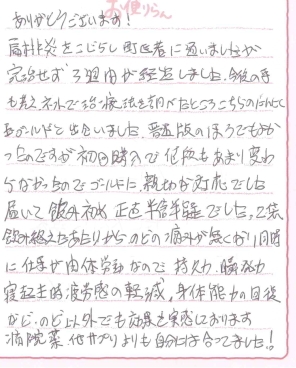 お便りらん
ありがとうございます！
扁桃炎をこじらし町医者に通いましたが
完治せず3週間が経過しました。今後の事
も考えネットで治療法を調べたところこちらのにんにく
玉ゴールドと出会いました。普通版のほうでもよか
ったのですが初回購入で値段もあまり変わ
らなかったのでゴールドに、親切な対応でした
届いて飲み初め正直半信半疑でした。2袋
飲み終えたあたりからのどの痛みが無くなり同時
に仕事が肉体労働なので持久力・瞬発力
寝起き時疲労感の軽減、身体能力の回復
など、のど以外でも効果を実感しております
病院薬 他サプリよりも自分には合ってました！